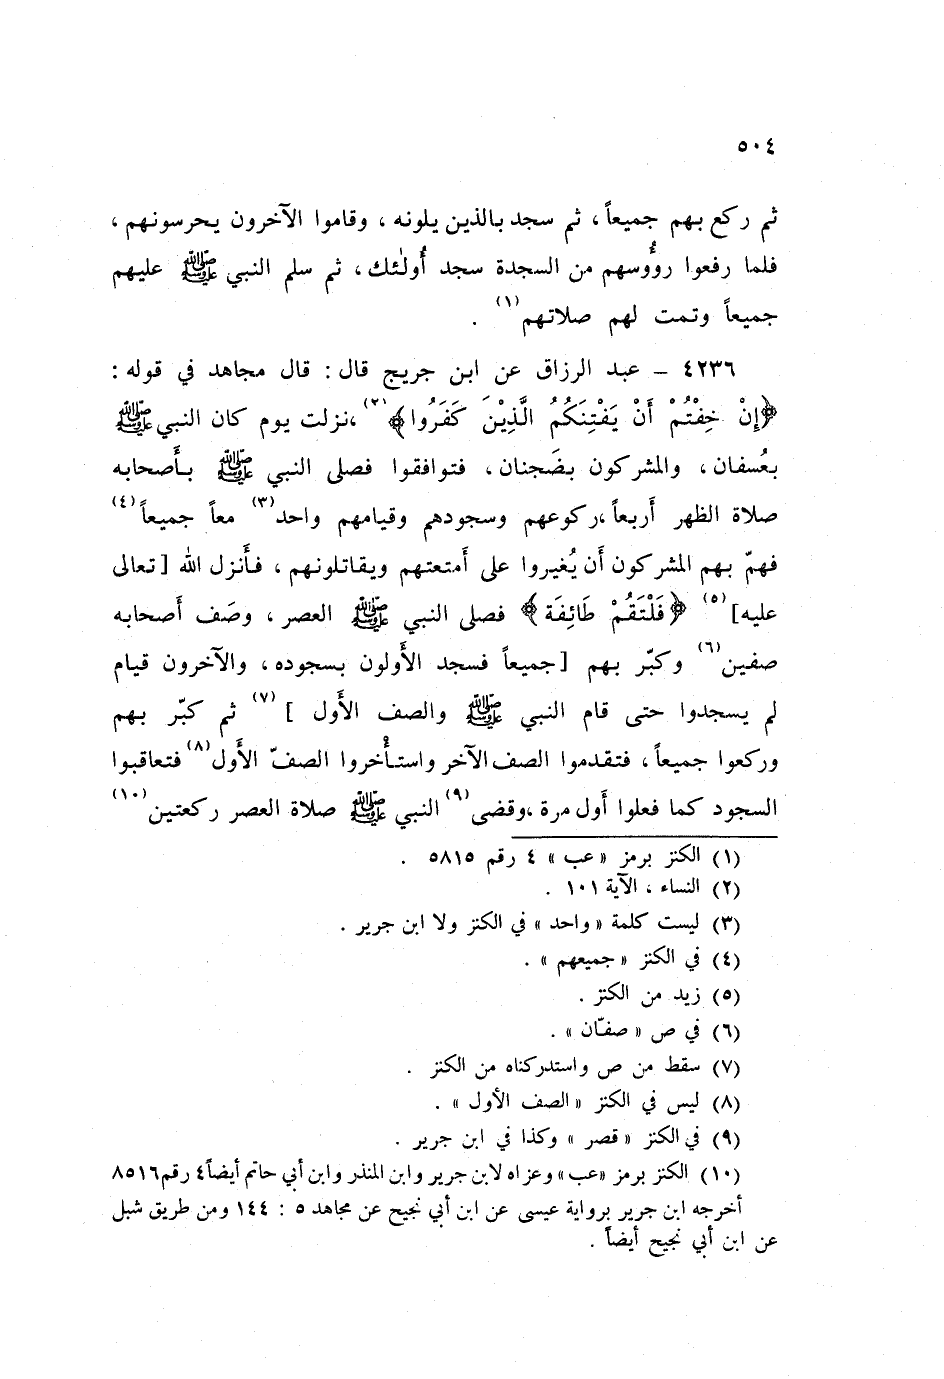 ٥٠٤
ثم ركع بهم جميعاً، ثم سجد بالذين يلونه ، وقاموا الآخرون يحرسونهم ،
فلما رفعوا رؤُوسهم من السجدة سجد أُولٰئك، ثم سلم النبي ﷺ عليهم
جميعاً وتمت لهم صلاتهم(١) .
٤٢٣٦ – عبد الرزاق عن ابن جريج قال: قال مجاهد في قوله :
﴿إِنْ خِفْتُمْ أَنْ يَفْتِنَكُمُ الَّذِيْنَ كَفَرُوا﴾(٢)،نزلت يوم كان النبي ﷺ
بعُسفان، والمشركون بضَجنان، فتوافقوا فصلى النبي ﷺ بأَصحابه
صلاة الظهر أَربعاً،ركوعهم وسجودهم وقيامهم واحد(٣) معاً جميعاً(٤)
فهمّ بهم المشركون أَن يُغيروا على أَمتعتهم ويقاتلونهم ، فأَنزل الله [تعالى
عليه](٥) ﴿فَلْتَقُمْ طَائِفَة﴾ فصلى النبي ﷺ العصر ، وصَف أَصحابه
صفين(٦) وكبّر بهم [جميعاً فسجد الأَولون بسجوده، والآخرون قيام
لم يسجدوا حتى قام النبي ﷺ والصف الأَول ](٧) ثم كبّر بهم
وركعوا جميعاً، فتقدموا الصف الآخر واستأْخروا الصفّ الأَول(٨) فتعاقبوا
السجود كما فعلوا أَول مرة ،وقضى(٩) النبي ﷺ صلاة العصر ركعتين(١٠)
(١) الكنز برمز «عب» ٤ رقم ٥٨١٥ .
(٢) النساء ، الآية ١٠١ .
(٣) ليست كلمة «واحد» في الكنز ولا ابن جرير .
(٤) في الكنز «جميعهم» .
(٥) زيد من الكنز .
(٦) في ص «صفّان» .
(٧) سقط من ص واستدركناه من الكنز .
(٨) ليس في الكنز «الصف الأول» .
(٩) في الكنز «قصر» وكذا في ابن جرير .
(١٠) الكنز برمز «عب» وعزاه لابن جرير وابن المنذر وابن أبي حاتم أيضاً٤ رقم٨٥١٦
أخرجه ابن جرير برواية عيسى عن ابن أبي نجيح عن مجاهد ٥ : ١٤٤ ومن طريق شبل
عن ابن أبي نجيح أيضاً .